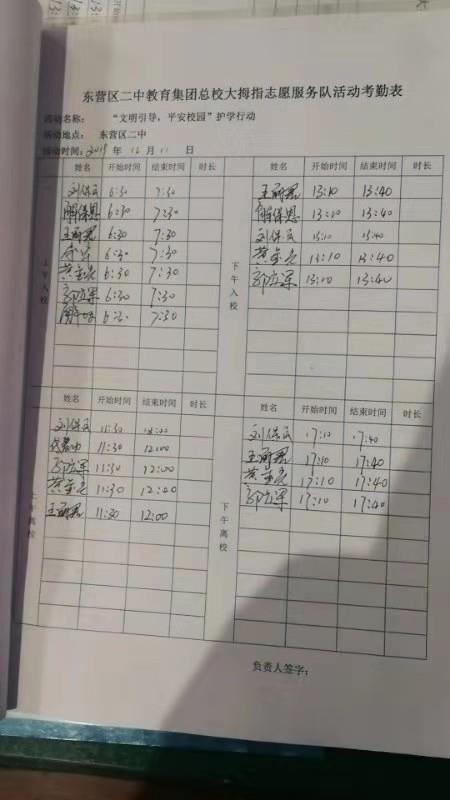 东营区二中教育集团总校大拇指志愿服务队活动考勤表
活动名称： “文明引导，平安校园”护学行动
活动地点： 东营区二中
活动时间：2019 年 12 月 11 日
姓名 开始时间 结束时间 时长
刘保民 6:30 7:30
解保恩 6:30 7:30
王丽君 6:30 7:30
6:30 7:30
黄金亮 6:30 7:30
郭应军 6:30 7:30
6:30 7:30
上午入校
姓名 开始时间 结束时间 时长
王丽君 13:10 13:40
解保恩 13:10 13:40
刘保民 13:10 13:40
黄金亮 13:10 13:40
郭应军 13:10 13:40
下午入校
姓名 开始时间 结束时间 时长
刘保民 11:30 12:00
11:30 12:00
郭应军 11:30 12:00
黄金亮 11:30 12:40
王丽君 11:30 12:00
上午离校
姓名 开始时间 结束时间 时长
刘保民 17:10 17:40
王丽君 17:10 17:40
黄金亮 17:10 17:40
郭应军 17:10 17:40
下午离校
负责人签字：